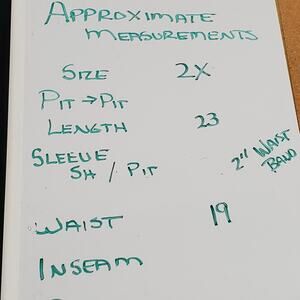 APPROXIMATE
MEASUREMENTS
SIZE 2X
PIT → PIT
LENGTH 23
SLEEVE
SH / PIT
2" WAIST
BAND
WAIST 19
INSEAM